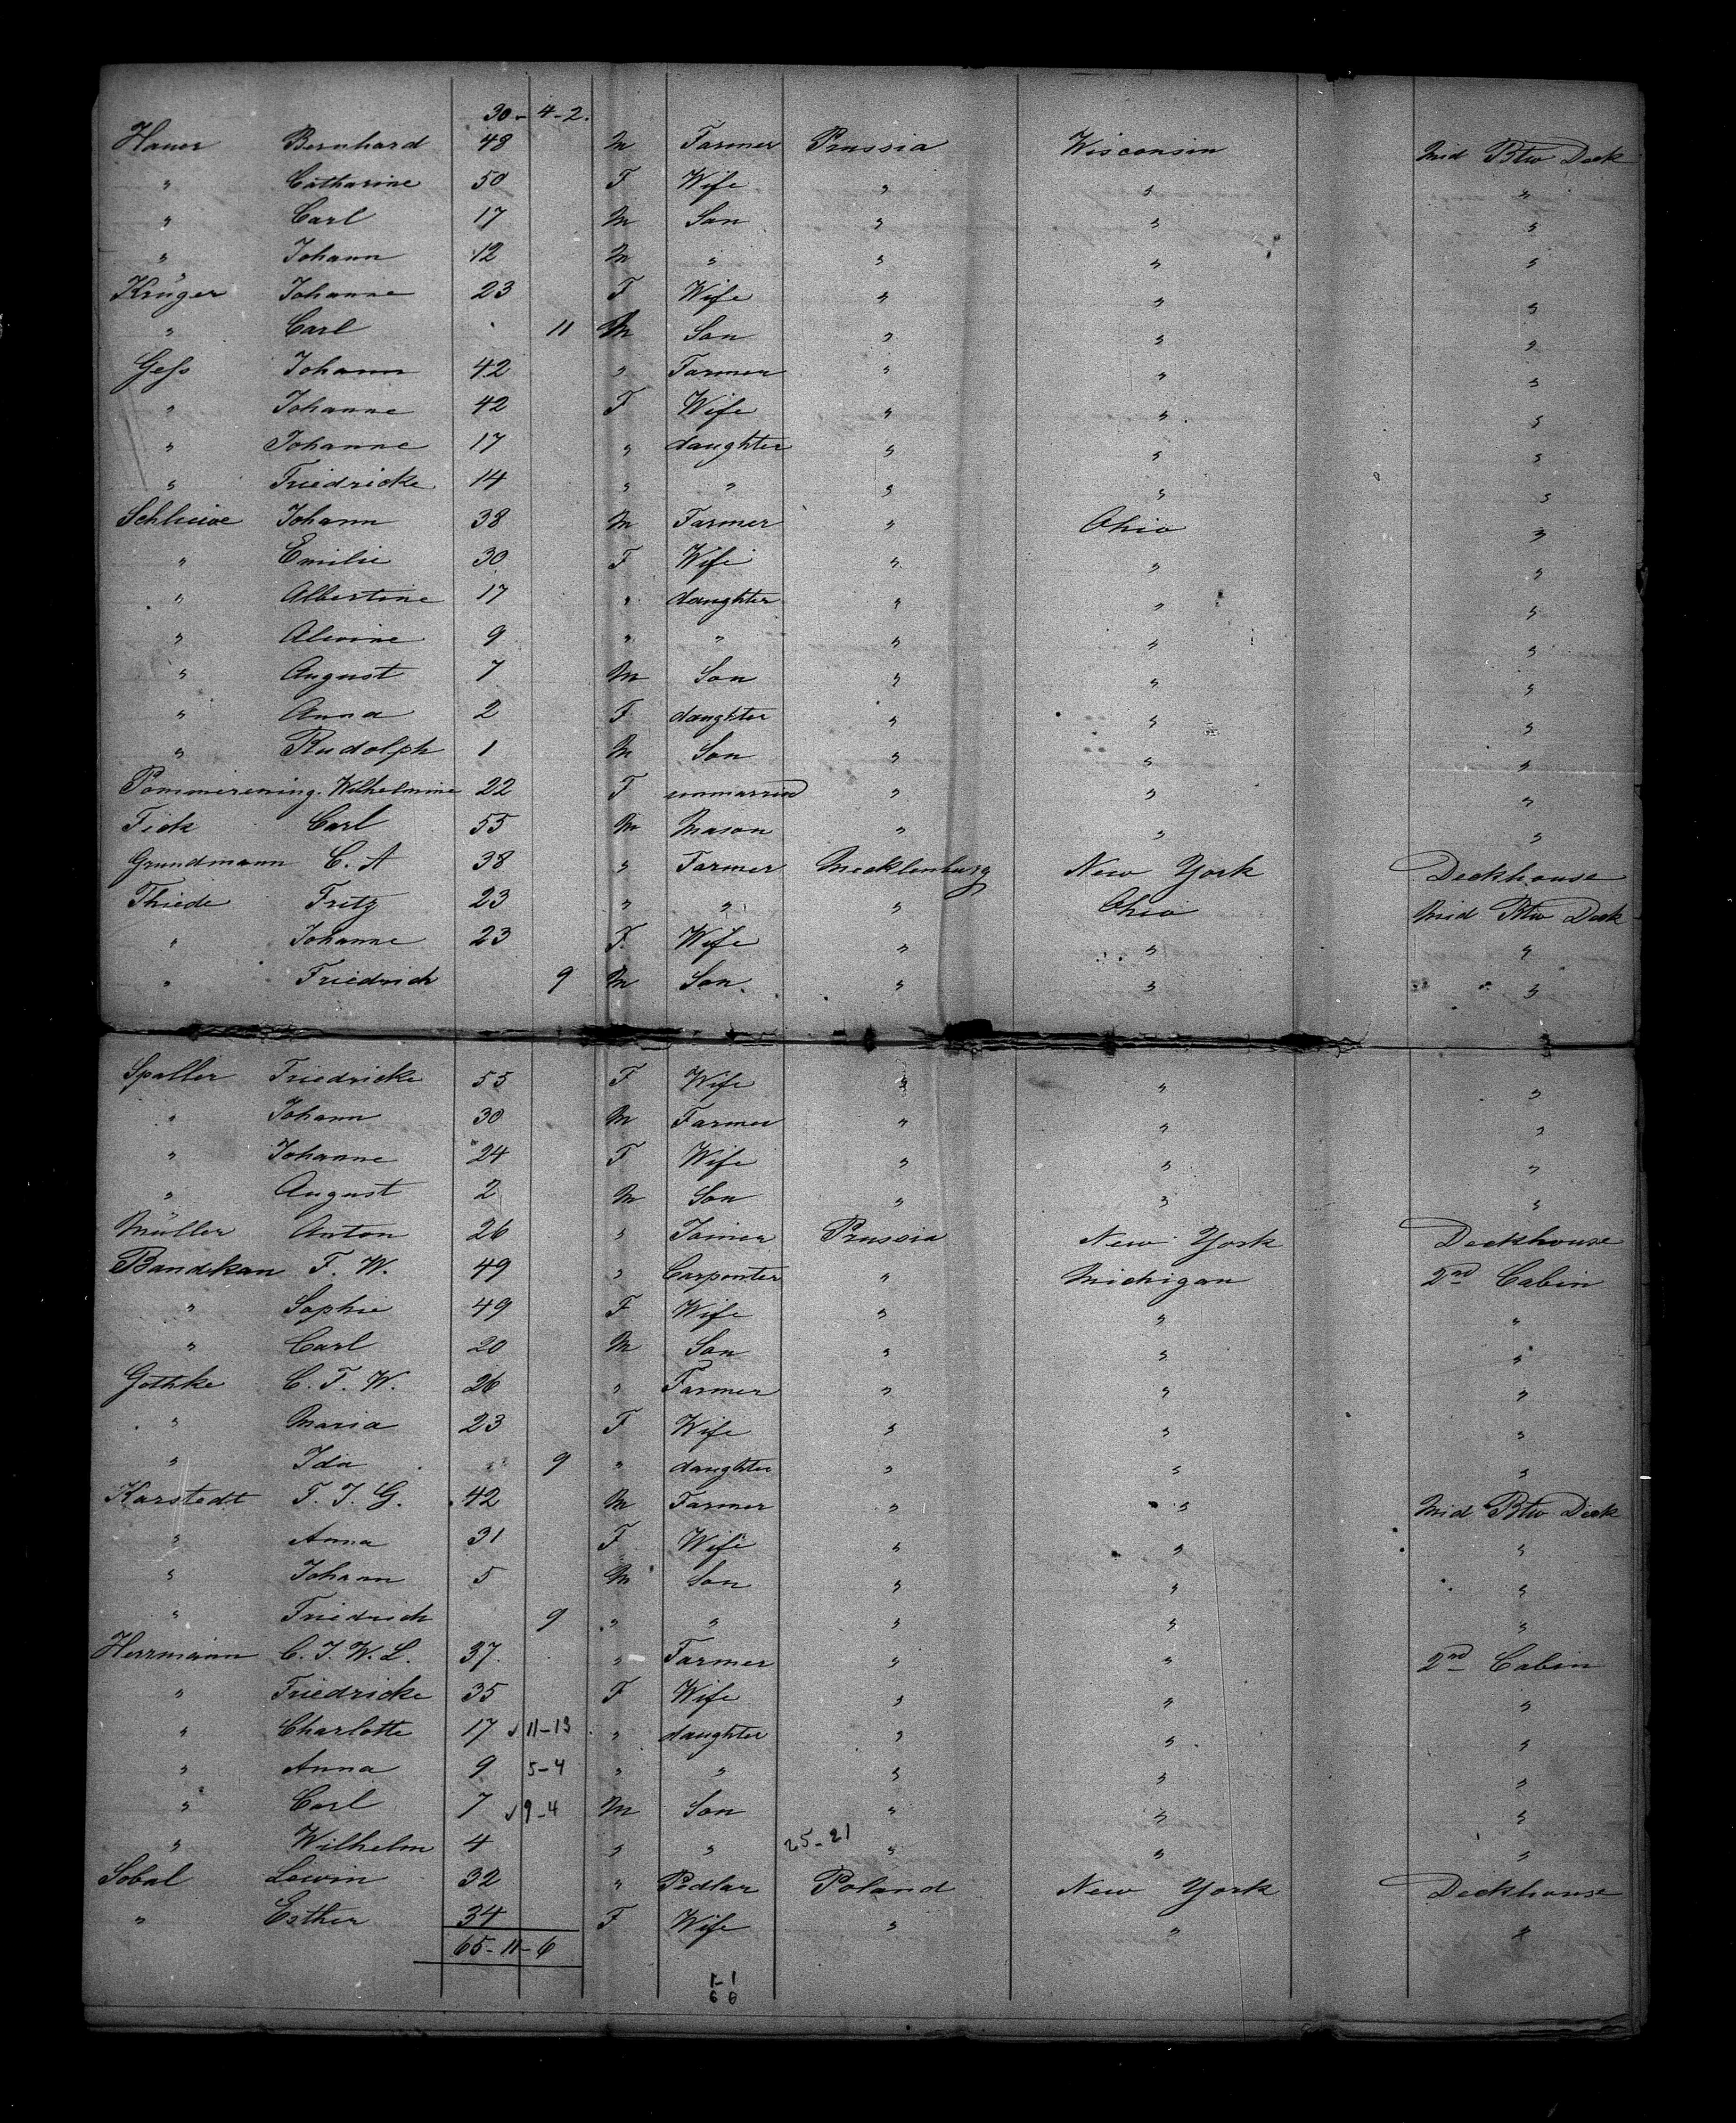 30 - 4 - 2.
Hauer Bernhard 48 M Farmer Prussia Wisconsin Mid Btw Deck
" Catharine 50 F Wife " " "
" Carl 17 M Son " " "
" Johann 12 M " " " "
Krüger Johanne 23 F Wife " " "
" Carl 11 M Son " " "
Gess Johann 42 " Farmer " " "
" Johanne 42 F Wife " " "
" Johanne 17 " daughter " " "
" Friedricke 14 " " " " "
Schliewe Johann 38 M Farmer " Ohio "
" Emilie 30 F Wife " " "
" Albertine 17 " daughter " " "
" Alwine 9 " " " " "
" August 7 M Son " " "
" Anna 2 F daughter " " "
" Rudolph 1 M Son " " "
Pommerening. Wilhelmine 22 F unmarried " " "
Fick Carl 55 M Mason " " "
Grundmann C. A 38 " Farmer Mecklenburg New York Deckhouse
Thiede Fritz 23 " " " Ohio Mid Btw Deck
" Johanne 23 F Wife " " "
" Friedrich 9 M Son " " "
Spaller Friedricke 55 F Wife " " "
" Johann 30 M Farmer " " "
" Johanne 24 F Wife " " "
" August 2 M Son " " "
Müller Anton 26 " Joiner Prussia New York Deckhouse
Bandekan F. W. 49 " Carpenter " Michigan 2nd Cabin
" Sophie 49 F Wife " " "
" Carl 20 M Son " " "
Gothke C. F. W. 26 " Farmer " " "
" Maria 23 F Wife " " "
" Ida 9 " daughter " " "
Karstedt F. J. G. 42 M Farmer " " Mid Btw Deck
" Anna 31 F Wife " " "
" Johann 5 M Son " " "
" Friedrich 9 " " " " "
Herrmann C. J. W. L. 37 " Farmer " " 2nd Cabin
" Friedricke 35 F Wife " " "
" Charlotte 17 11-13 " daughter " " "
" Anna 9 5-4 " " " " "
" Carl 7 9-4 M Son " " "
" Wilhelm 4 " " 25-21 " " "
Sobal Lewin 32 " Pedlar Poland New York Deckhouse
" Esther 34 F Wife " " "
65 - 11 - 6
1-1
6 6